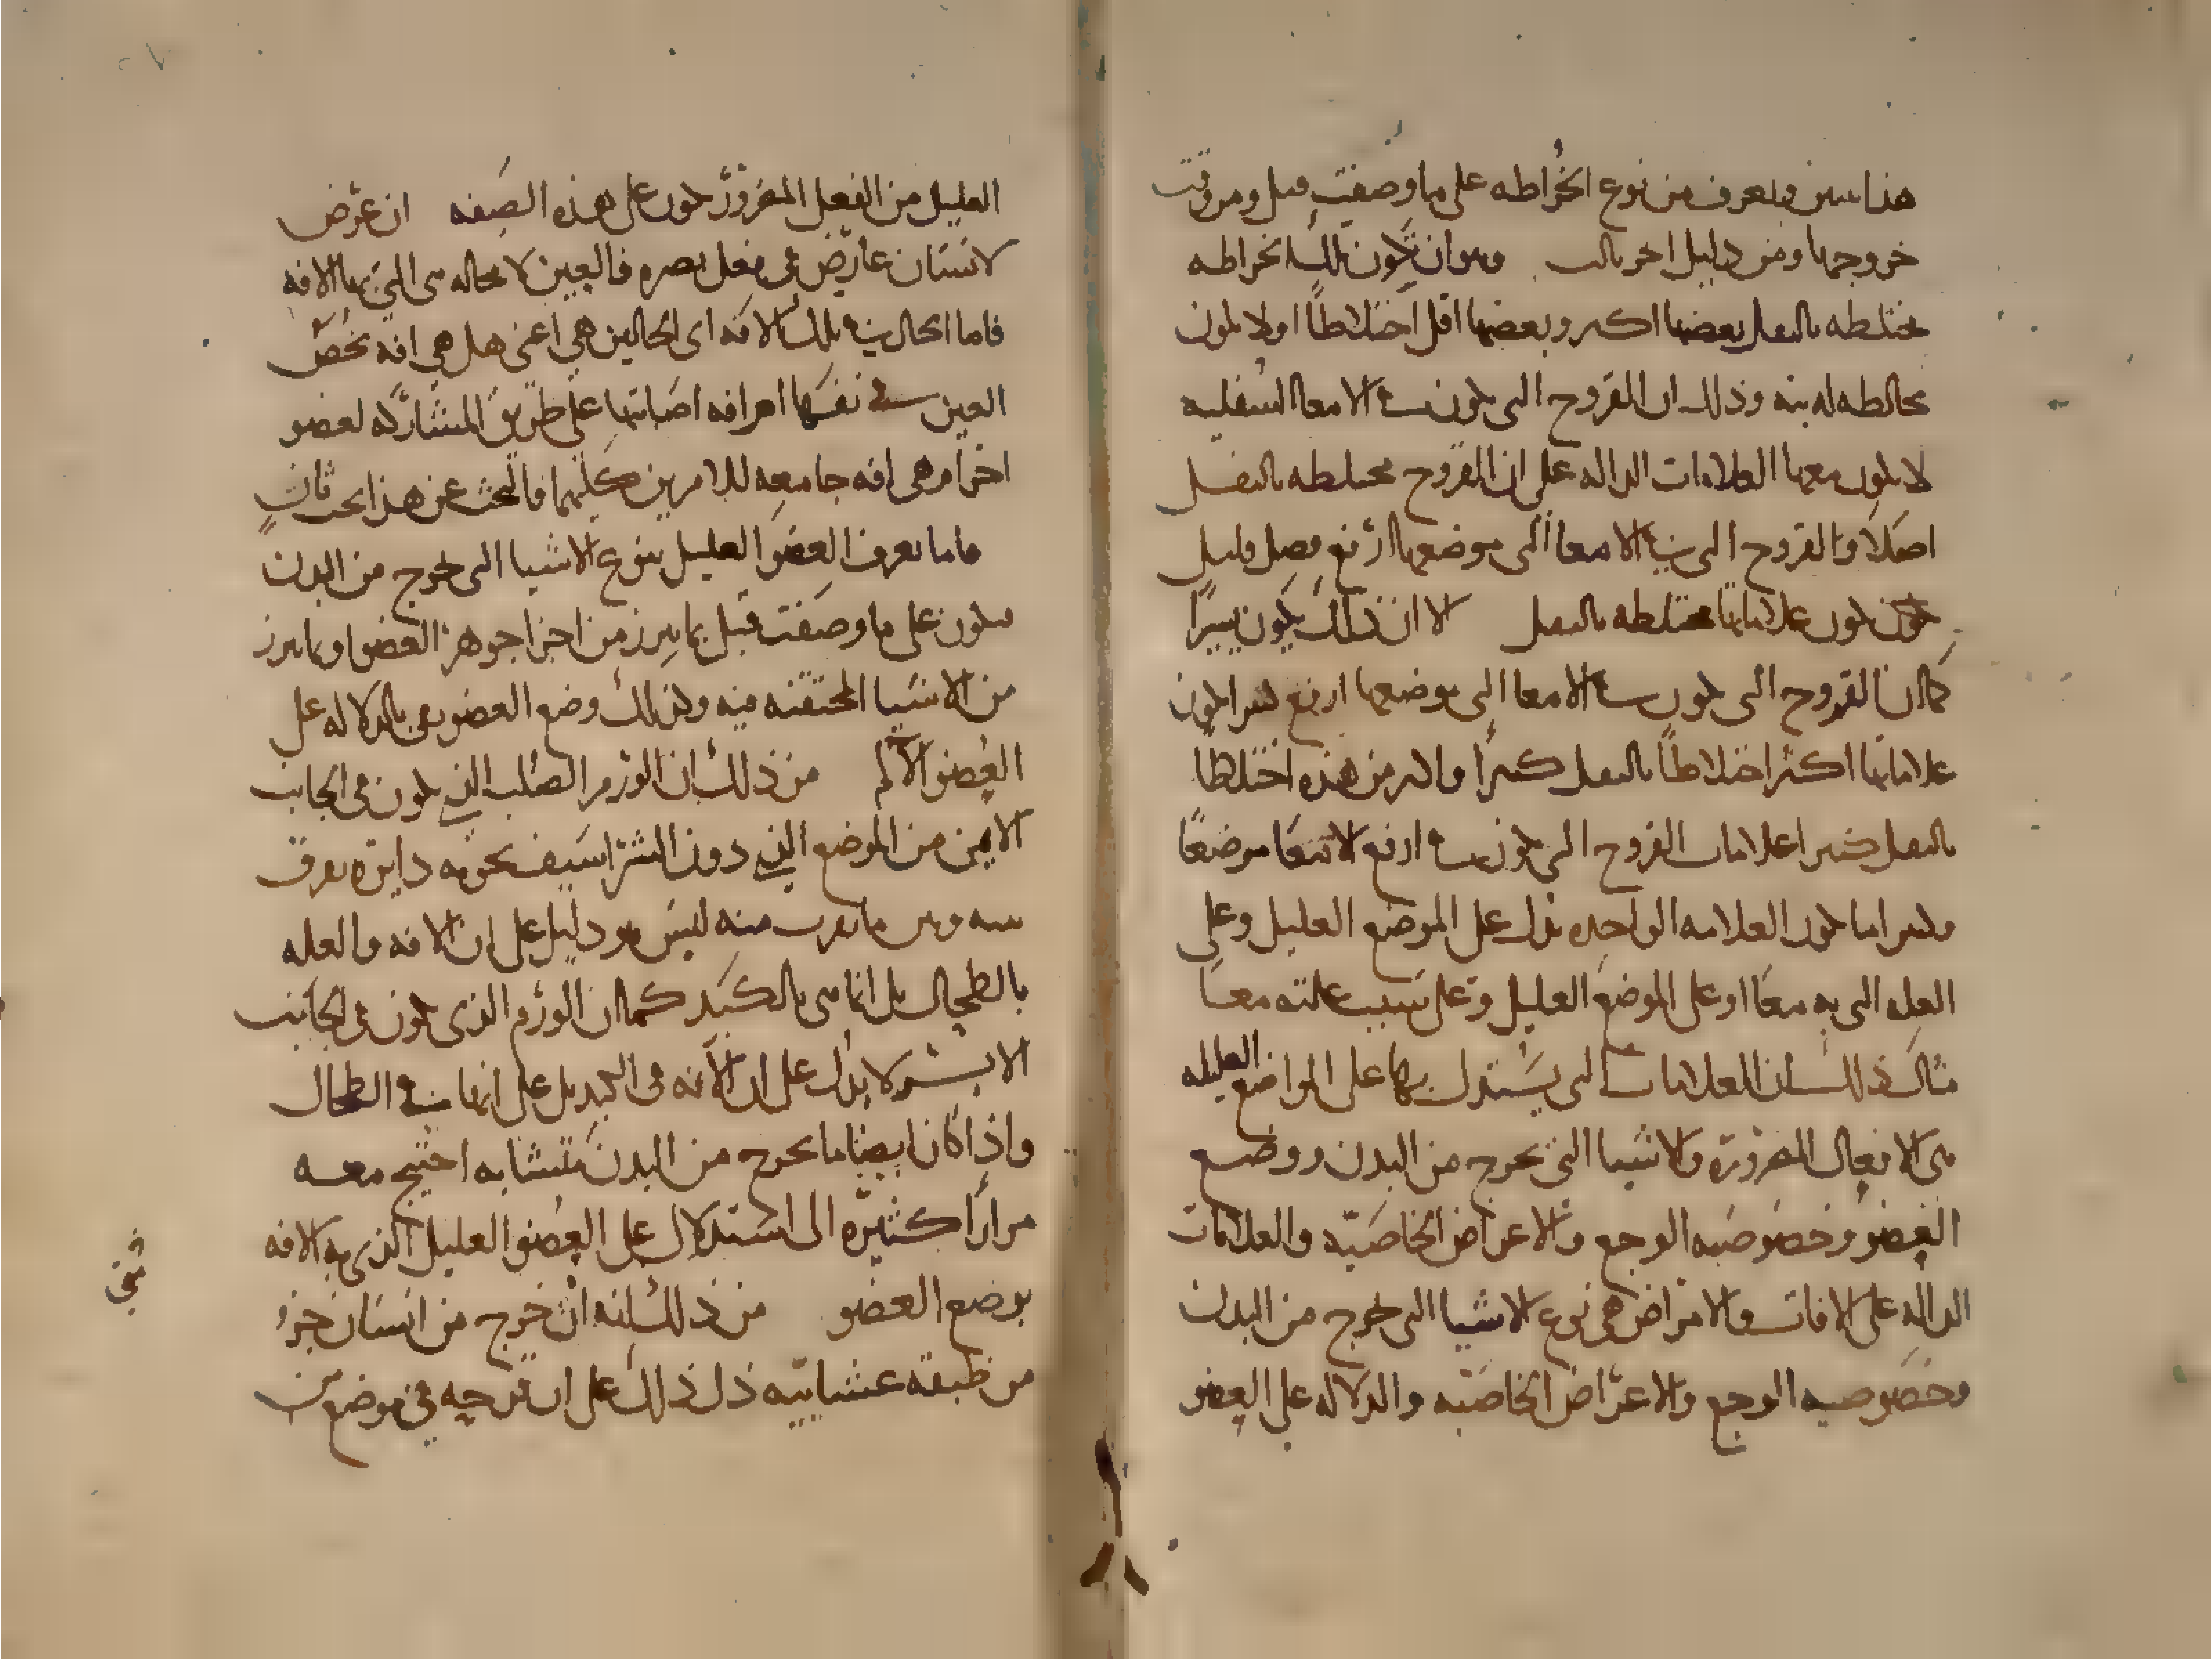 هذا سىں وىعرف من نوع الخراطه على ما وصفت قبل ومن وقت
خروجها ومن دليل اخر ثالث وهو ان تكون تلك الخراطه
مختلطه بالثفل بعضها اكثر وبعضها اقل اختلاطاً او لا تكون
مخالطه له بته وذلك ان القروح التى تكون فى الامعا السفليه
لا تكون معها العلامات الداله على ان القروح مختلطه بالثفل
اصلا والقروح التى فى الامعا التى موضعها ارفع فضل قليل
تكون علاماتها مختلطه بالثفل الا ان ذلك يكون يسيرًا
كما ان القروح التى تكون فى الامعا التى موضعها ارفع كثيرا تكون
علاماتها اكثر اختلاطاً بالثفل كثيرا واكثر من هذه اختلاطا
بالثفل كثيرا علامات القروح التى تكون فى ارفع الامعا موضعًا
وكثيرا ما تكون العلامه الواحده تدل على الموضع العليل وعلى
العله التى به معًا او على الموضع العليل وعلى سبب علته معا
مثال ذلك ان العلامات التى يستدل بها على المواضع العليله
هى الافعال المضروره والاشيا التى تخرج من البدن ووضع
العضو وخصوصيه الوجع والاعراض الخاصيه والعلامات
الداله على الافات والامراض هى نوع الاشيا التى تخرج من البدن
وخصوصيه الوجع والاعراض الخاصيه والدلاله على العضو
العليل من الفعل المضرور تكون على هذه الصفه ان عرض
لانسان عارض فى فعل بصره فالعين لا محاله هى التى بها الافه
فاما الحال فى تلك الافه اى الحالين هى اعنى هل هى افه تخص
العين فى نفسها ام افه اصابتها على طريق المشاركه لعضو
اخر ام هى افه جامعه للامرين كليهما فالبحث عن هذا بحث ثانٍ
فاما تعرف العضو العليل بنوع الاشيا التى تخرج من البدن
فيكون على ما وصفت قبل بما يبرز من اجزا جوهر العضو او بما يبرز
من الاشيا المحتقنه فيه وكذلك وضع العضو يفى بالدلاله على
العضو الالم من ذلك ان الورم الصلب الذى يكون فى الجانب
الايمن من الموضع الذى دون الشراسيف تحوىه دايره تفرق
بينه وبين ما يقرب منه ليس هو دليل على ان الافه والعله
بالطحال بل انما هى بالكبد كما ان الورم الذى يكون فى الجانب
الايسر لا يدل على ان الافه فى الكبد بل على انها فى الطحال
واذا كان ايضا ما يخرج من البدن متشابه احتيج معه
مرارًا كثيره الى استدلال على العضو العليل الذى به الافه
بوضع العضو من ذلك انه ان خرج من انسان جزو
من طبقه غشاييه دل ذلك على ان قرحه فى موضع من